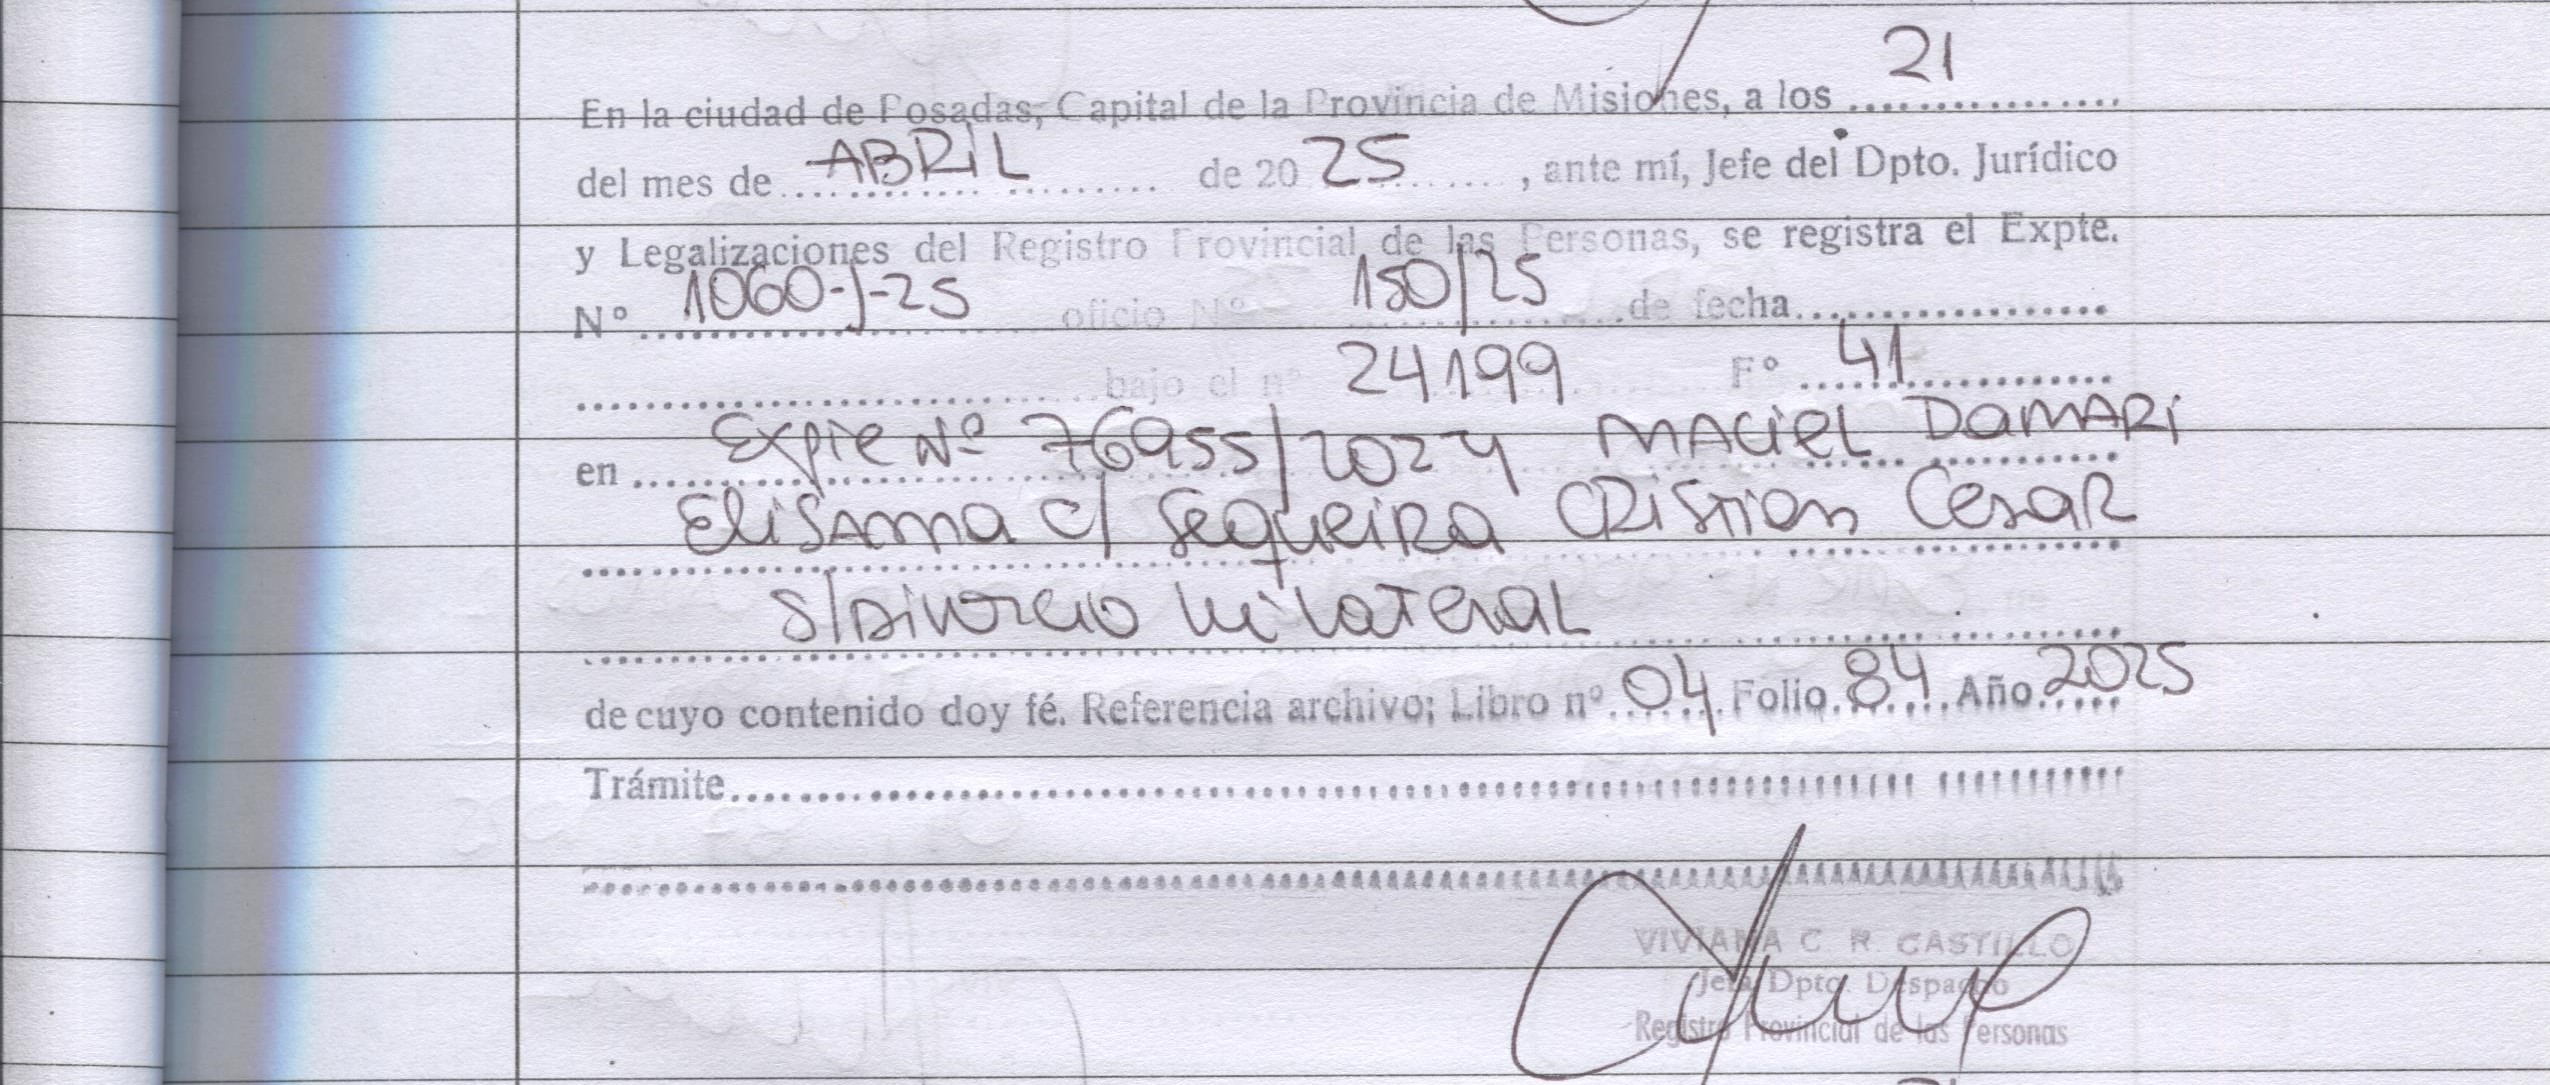 21
En la ciudad de Posadas, Capital de la Provincia de Misiones, a los ................
del mes de ABRIL de 20 25 , ante mí, Jefe del Dpto. Jurídico
y Legalizaciones del Registro Provincial de las Personas, se registra el Expte.
N° 1060-J-25 oficio N° 150/25 de fecha..................
bajo el n° 24199 F° 41
en Expte Nº 76955/2024 MACIEL DAMARI
Elisama c/ Sequeira Cristian Cesar
S/Divorcio unilateral
de cuyo contenido doy fé. Referencia archivo; Libro nº 04 Folio 84 Año 2025
Trámite
VIVIANA C. R. CASTILLO
Jefa Dpto. Despacho
Registro Provincial de las Personas